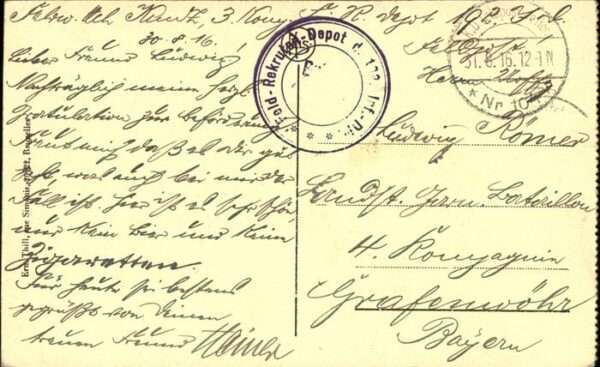 Kunz, 3. Komp. F. R. Depot 192. I. D.
30.8.16.
Lieber Freund Ludwig!
Nachträglich meine herzl.
Gratulation zur Beförderung
Freut mich daß es dir gut
geht was auch bei mir der
Fall ist. Hier ist es sehr schön
nur kein Bier und keine
Zigaretten.
Für heute sei bestens
gegrüßt von deinem
treuen Freund Heiner
Feld-Rekruten-Depot d. Inf.-Div.
31.8.16. 12-1N
Nr.
Feldpost
Herrn
Ludwig Römer
Landst. Jnf. Bataillon
4. Kompagnie
Grafenwöhr
Bayern
Ern. Thill, Bruxelles